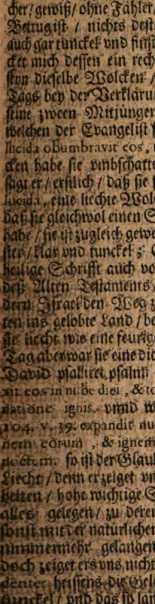 cher/ gewiß/ ohne Fähler
Betrug ist / nichts dest
auch gar tunckel und finst
cket mich dessen ein rech
seyn dieselbe Wolcken/
Tags bey der Verkläru
seine zween Mitjünger
welchen der Evangelist
lucida obumbravit eos,
cken habe sie umbschatte
sagt er/ erstlich / daß sie
lucida, eine liechte Wol
daß sie gleichwol einen S
habe / sie ist zugleich gewe
ster/ klar und tunckel
heilige Schrifft auch vo
deß Alten Testaments
dern Israel den Weg z
ten ins gelobte Land / be
sie liecht wie eine feurig
Tag aber war sie eine di
David psallirt, psalm
xit eos in nube diei, & to
natione ignis, unnd w
104. v. 39. expandit nu
nem eorum, & ignem
noctem. so ist der Glau
Liecht / denn er zeiget vn
heiten / hohe wichtige
alles gelegen / zu deren
sonst mit der natürlichen
nimmermehr gelangen
doch zeiget ers uns nicht
heissens die Gel
tunckel / und das so lan